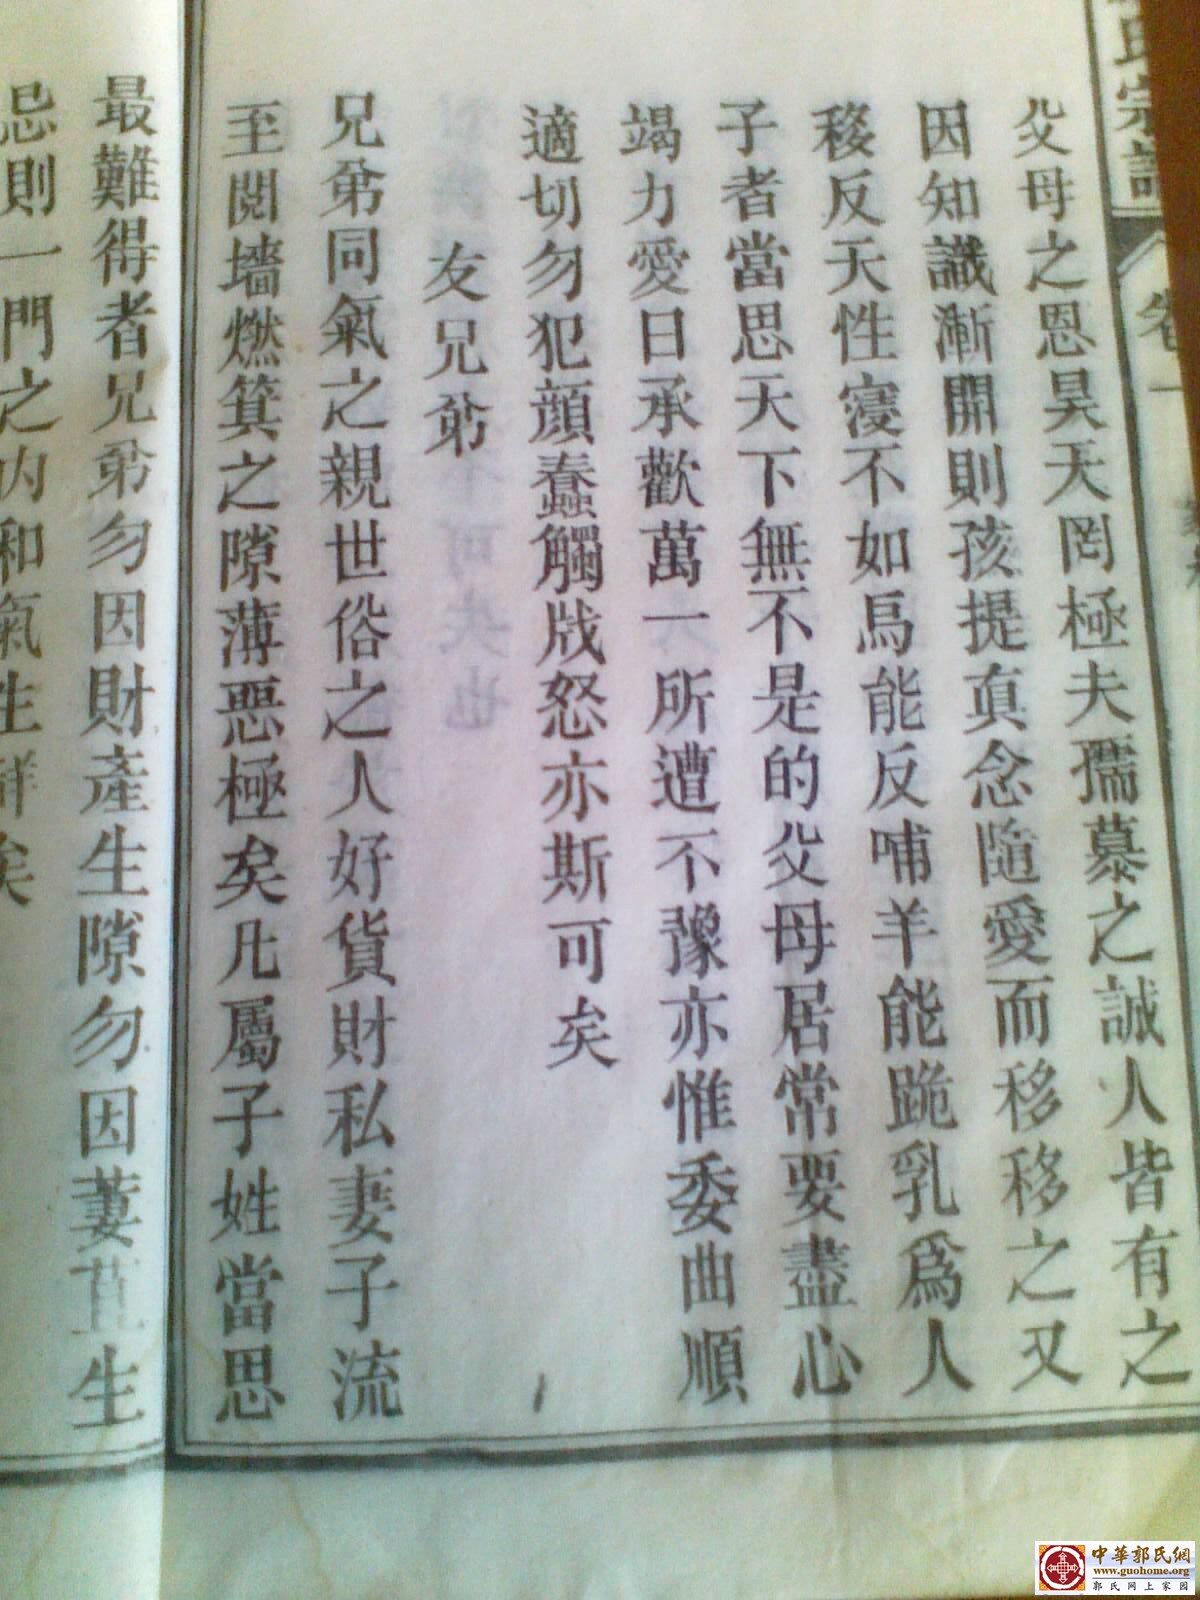 氏宗譜
卷一
父母之恩昊天罔極夫孺慕之誠人皆有之
因知識漸開則孩提真念隨愛而移移之又
移反天性寖不如烏能反哺羊能跪乳爲人
子者當思天下無不是的父母居常要盡心
竭力愛日承歡萬一所遭不豫亦惟委曲順
適切勿犯顔蠢觸戕怒亦斯可矣
友兄弟
兄弟同氣之親世俗之人好貨財私妻子流
至鬩墻燃箕之隙薄惡極矣凡屬子姓當思
最難得者兄弟勿因財產生隙勿因萋苴生
忌則一門之内和氣生祥矣
中華郭氏網
www.guohome.org
郭氏网上家园